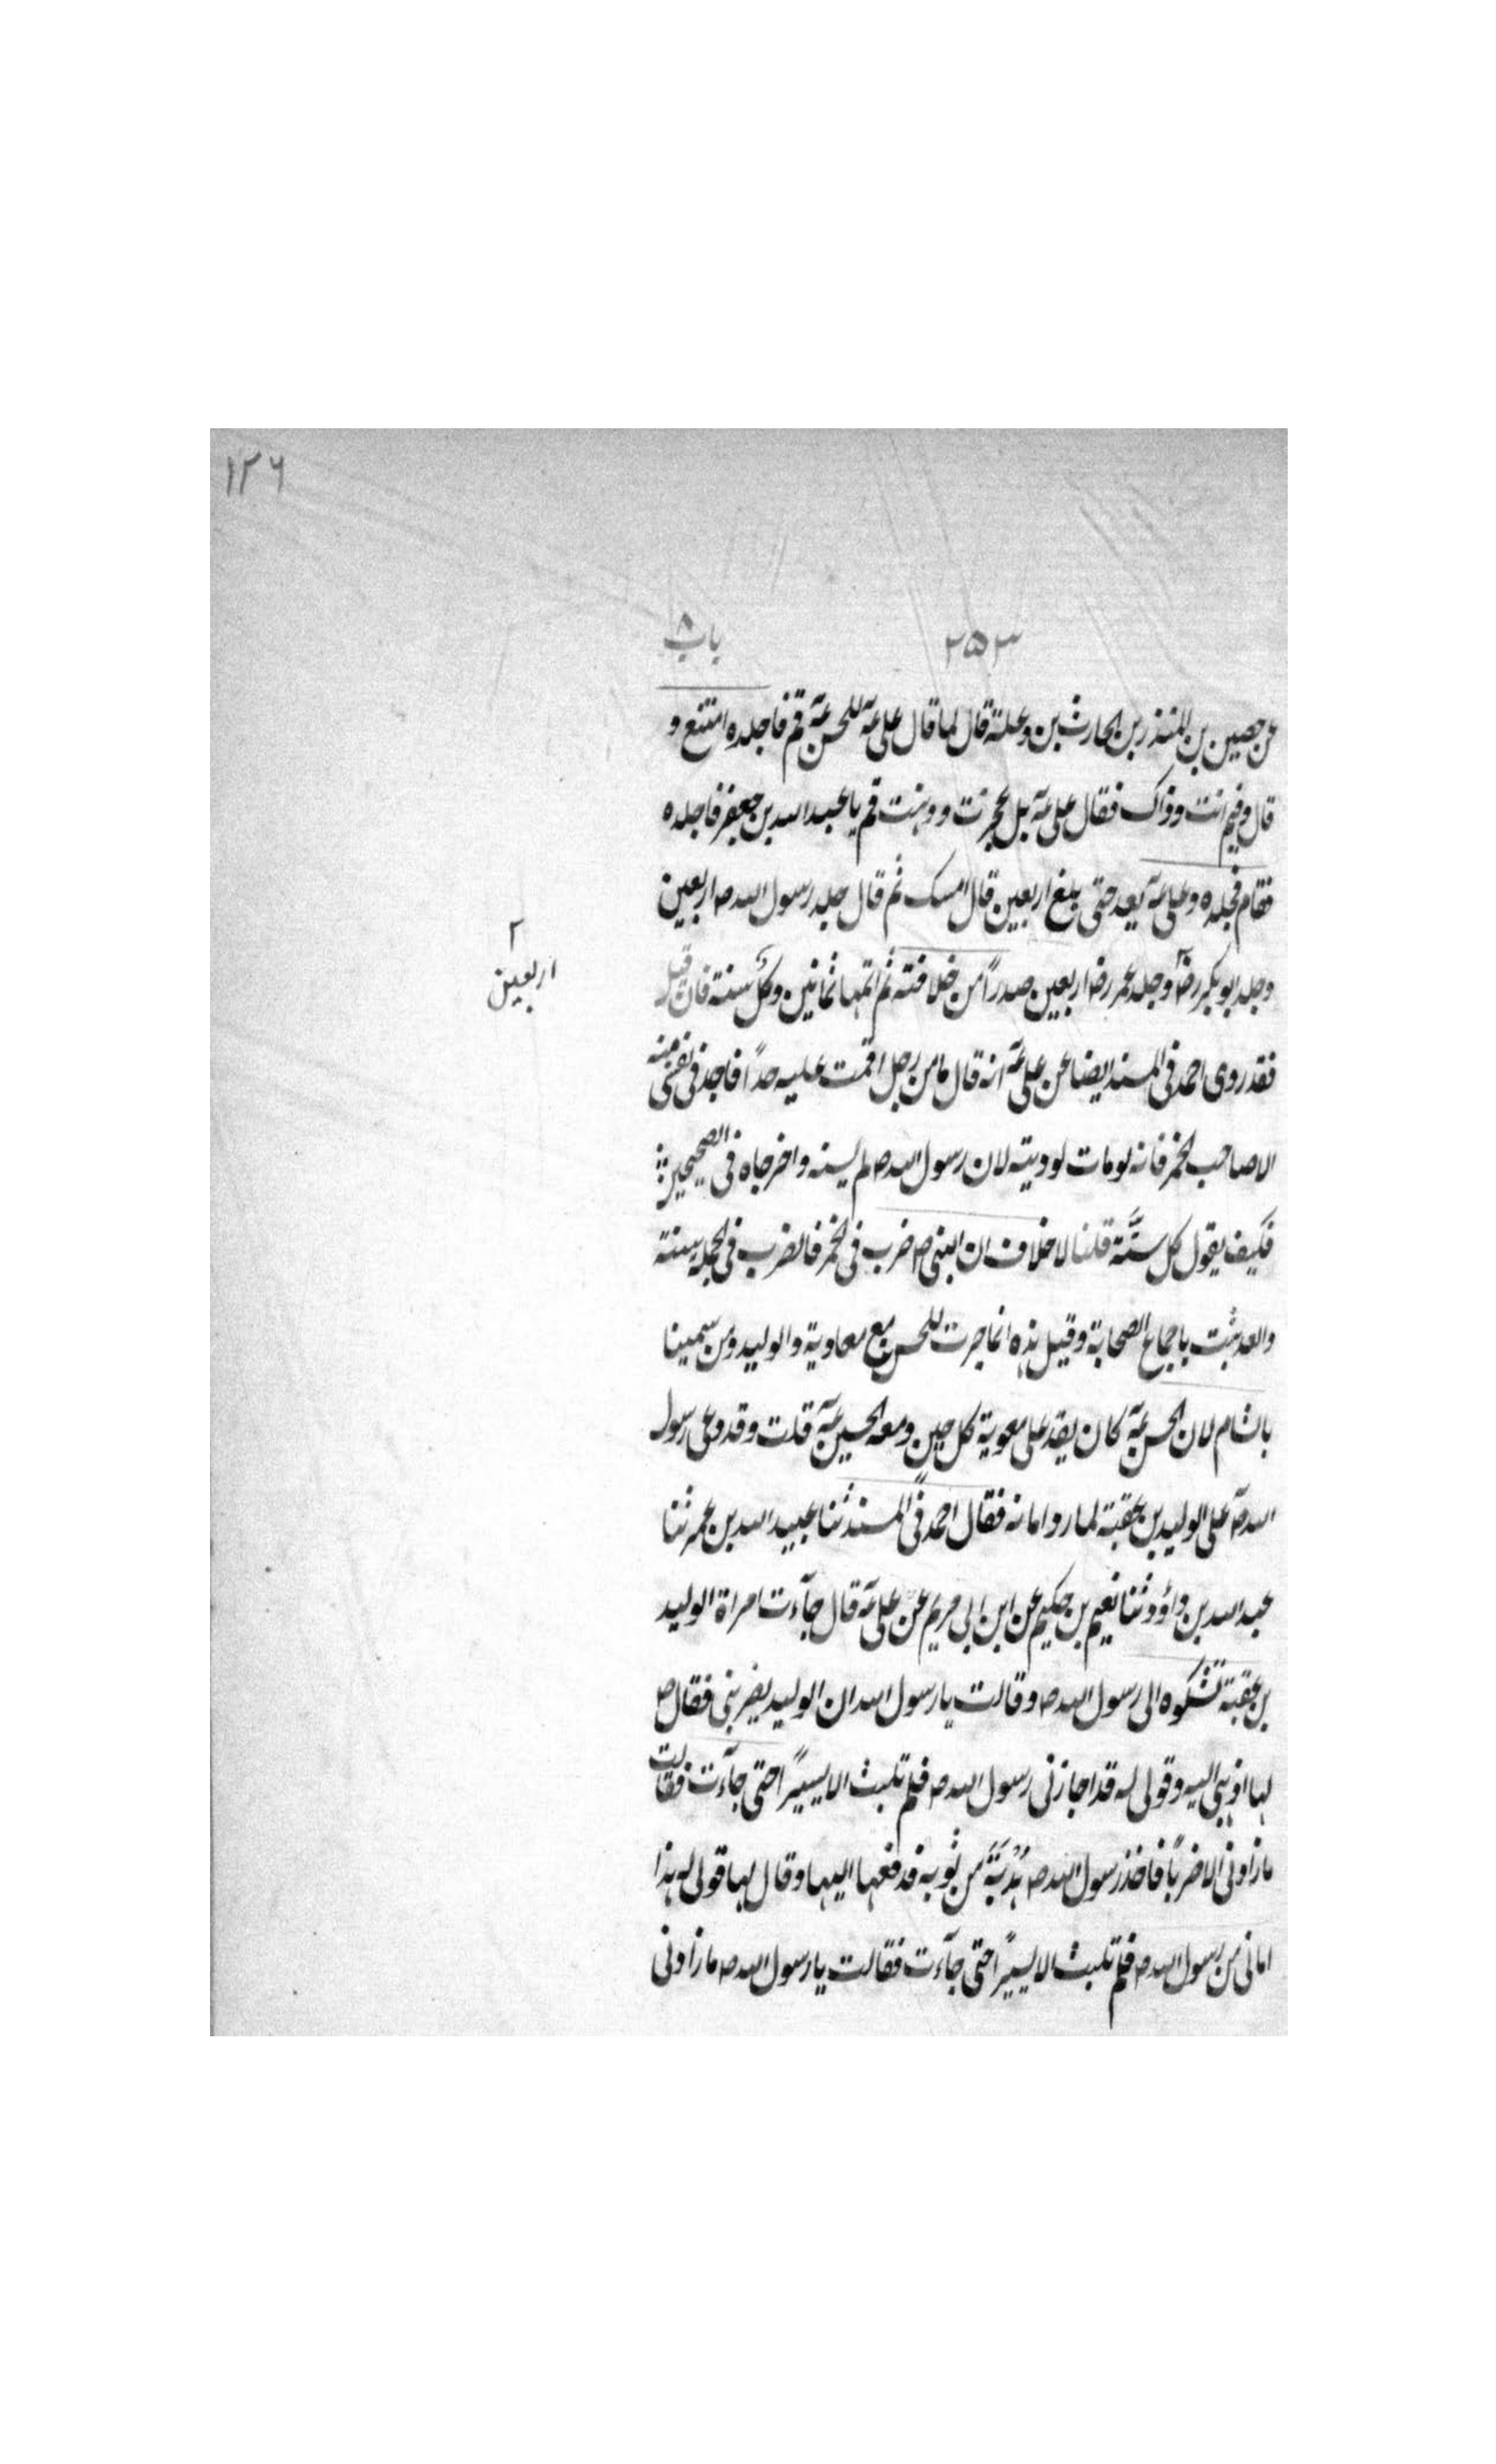 ١٢٦
٢٥٣ باب ٨
عن حصين بن المنذر بن الحارث بن وعلة قال لما قال على عۤه للحسن عۤه قم فاجلده امتنع و
قال وفيم انت وذاك فقال على عۤه بل عجزت ووهنت قم يا عبد الله بن جعفر فاجلده
فقام فجلده وعلى عۤه يعد حتى بلغ اربعين قال امسك ثم قال جلد رسول الله صه اربعين
وجلد ابو بكر رضۤ ٢ وجلد عمر رضه اربعين صدراً من خلافته ثم اتمها ثمانين وكلٌ سنة فان قيل
٢ اربعين
فقد روى احمد فى المسند ايضا عن على عۤه انه قال ما من رجل اقمت عليه حداً فاجد فى نفسى منه
الا صاحب الخمر فانه لو مات لوديته لان رسول الله صه لم يسنه واخرجاه فى الصحيحين
فكيف يقول كل سنَّة قلنا لا خلاف ان النبى صه ضرب فى الخمر فالضرب فى الجملة سنة
والعد ثبت باجماع الصحابة وقيل هذه انما جرت للحسن مع معاوية والوليد ومن سمينا
بالشام لان الحسن عۤه كان يفد على معوية كل حين ومعه الحسين عۤه قلت وقد دعى رسول
الله صۤ على الوليد بن عقبة لما رد امانه فقال احمد فى المسند ثنا عبيد الله بن عمر ثنا
عبد الله بن داؤد ثنا نعيم بن حكيم عن ابن ابى مريم عن على عۤه قال جآءت امراة الوليد
بن عقبة تشكوه الى رسول الله صه وقالت يا رسول الله ان الوليد يضربنى فقال ص
لها اذهبى اليه وقولى له قد اجازنى رسول الله صه فلم تلبث الا يسيراً حتى جآءت فقالت
ما زادنى الا ضرباً فاخذ رسول الله صه هُدْبَةً من ثوبه فدفعها اليها وقال لها قولى له هذا
امانى من رسول الله صه فلم تلبث الا يسيراً حتى جآءت فقالت يا رسول الله صه ما زادنى